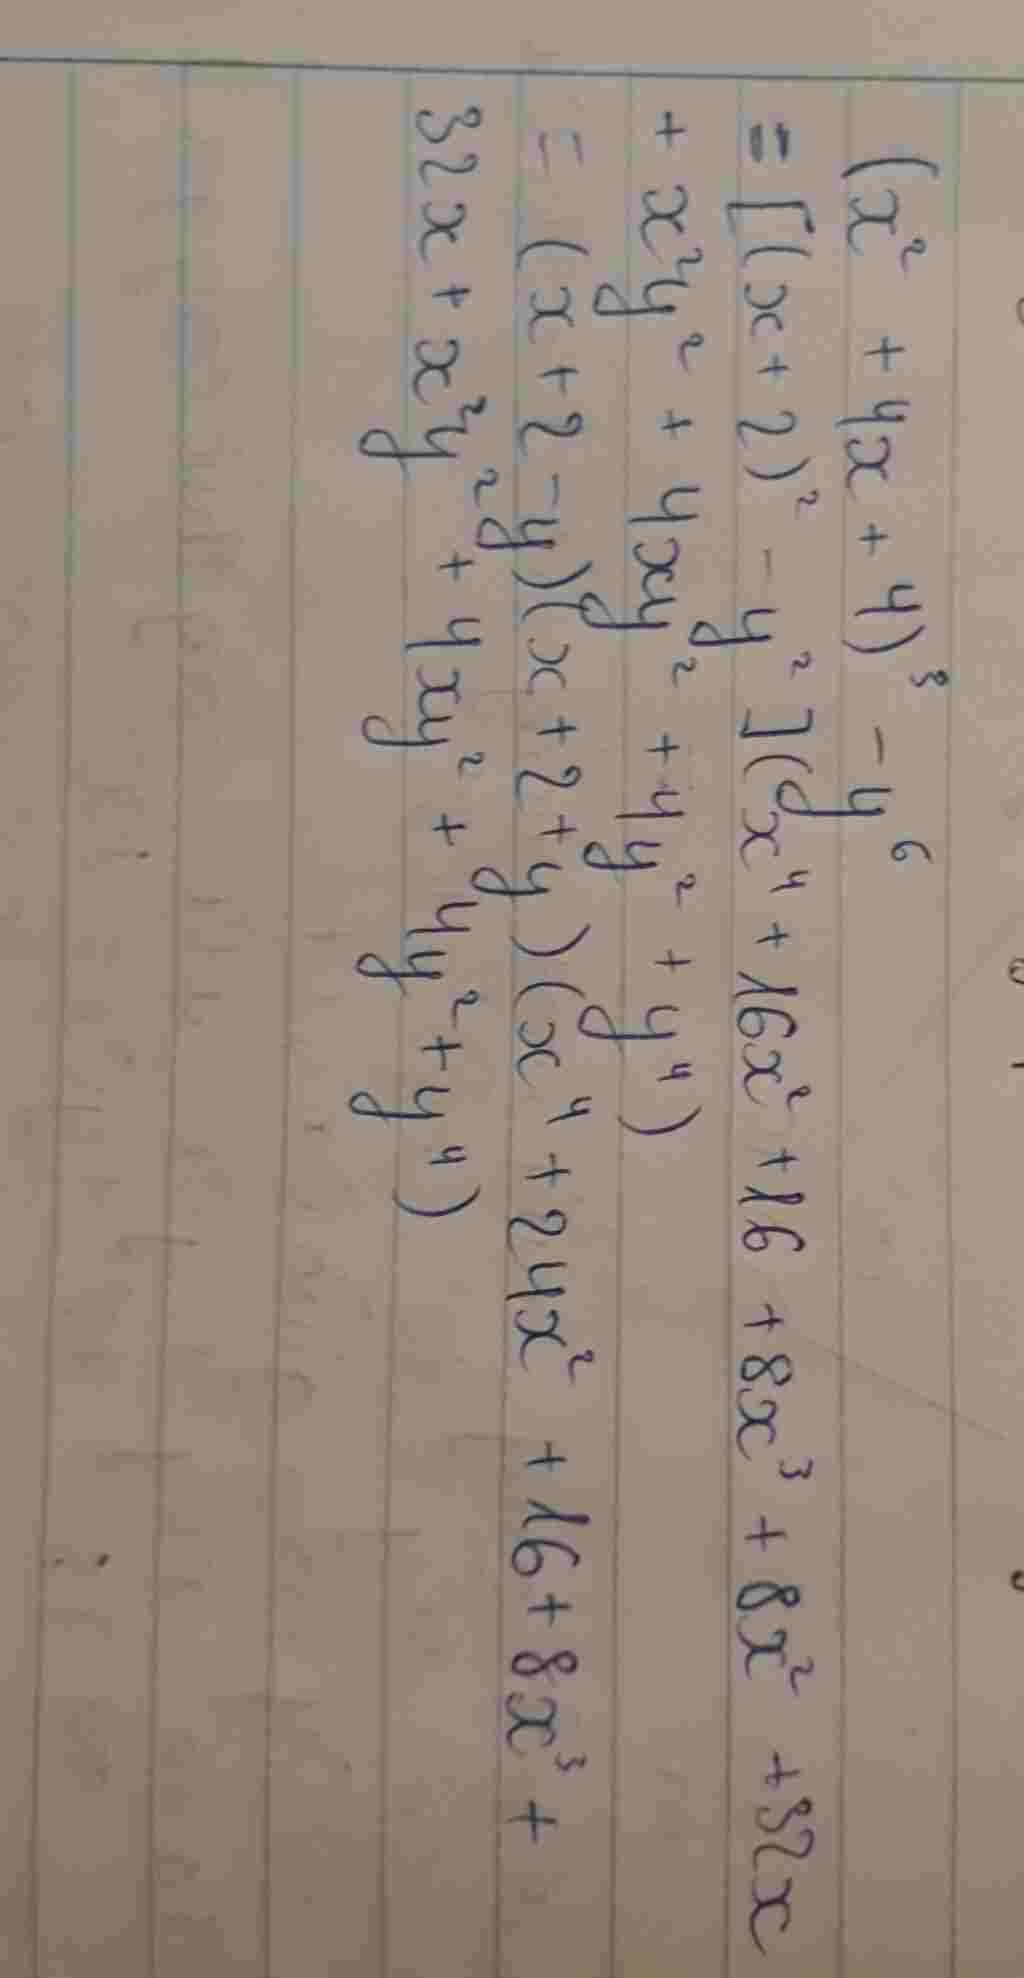 (x² + 4x + 4)³ - y⁶
= [(x + 2)² - y²](x⁴ + 16x² + 16 + 8x³ + 8x² + 32x
+ x²y² + 4xy² + 4y² + y⁴)
= (x + 2 - y)(x + 2 + y)(x⁴ + 24x² + 16 + 8x³ +
32x + x²y² + 4xy² + 4y² + y⁴)